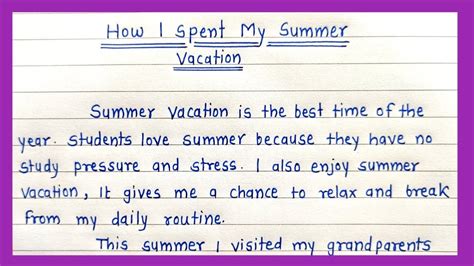 How I Spent My Summer
Vacation
Summer Vacation is the best time of the
year. Students love summer because they have no
study pressure and stress. I also enjoy summer
vacation, It gives me a chance to relax and break
from my daily routine.
This summer I visited my grandparents